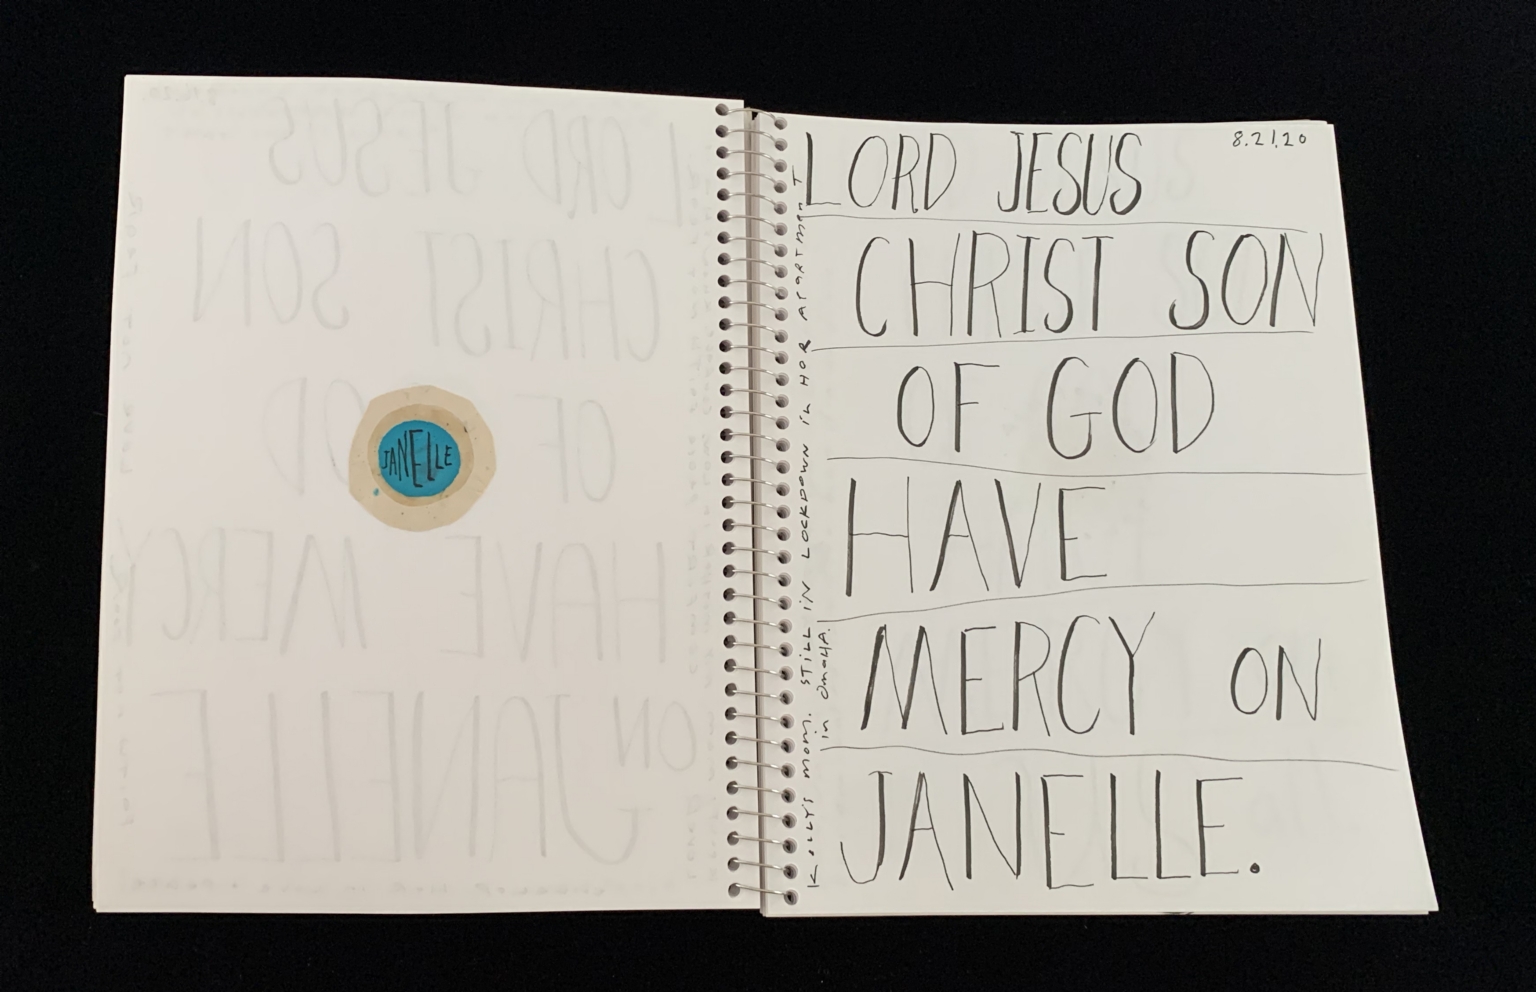 JANELLE
8.21.20
LORD JESUS
CHRIST SON
OF GOD
HAVE
MERCY ON
JANELLE.
KELLY'S MOM. STILL IN LOCKDOWN IN HER APARTMENT
IN OMAHA.